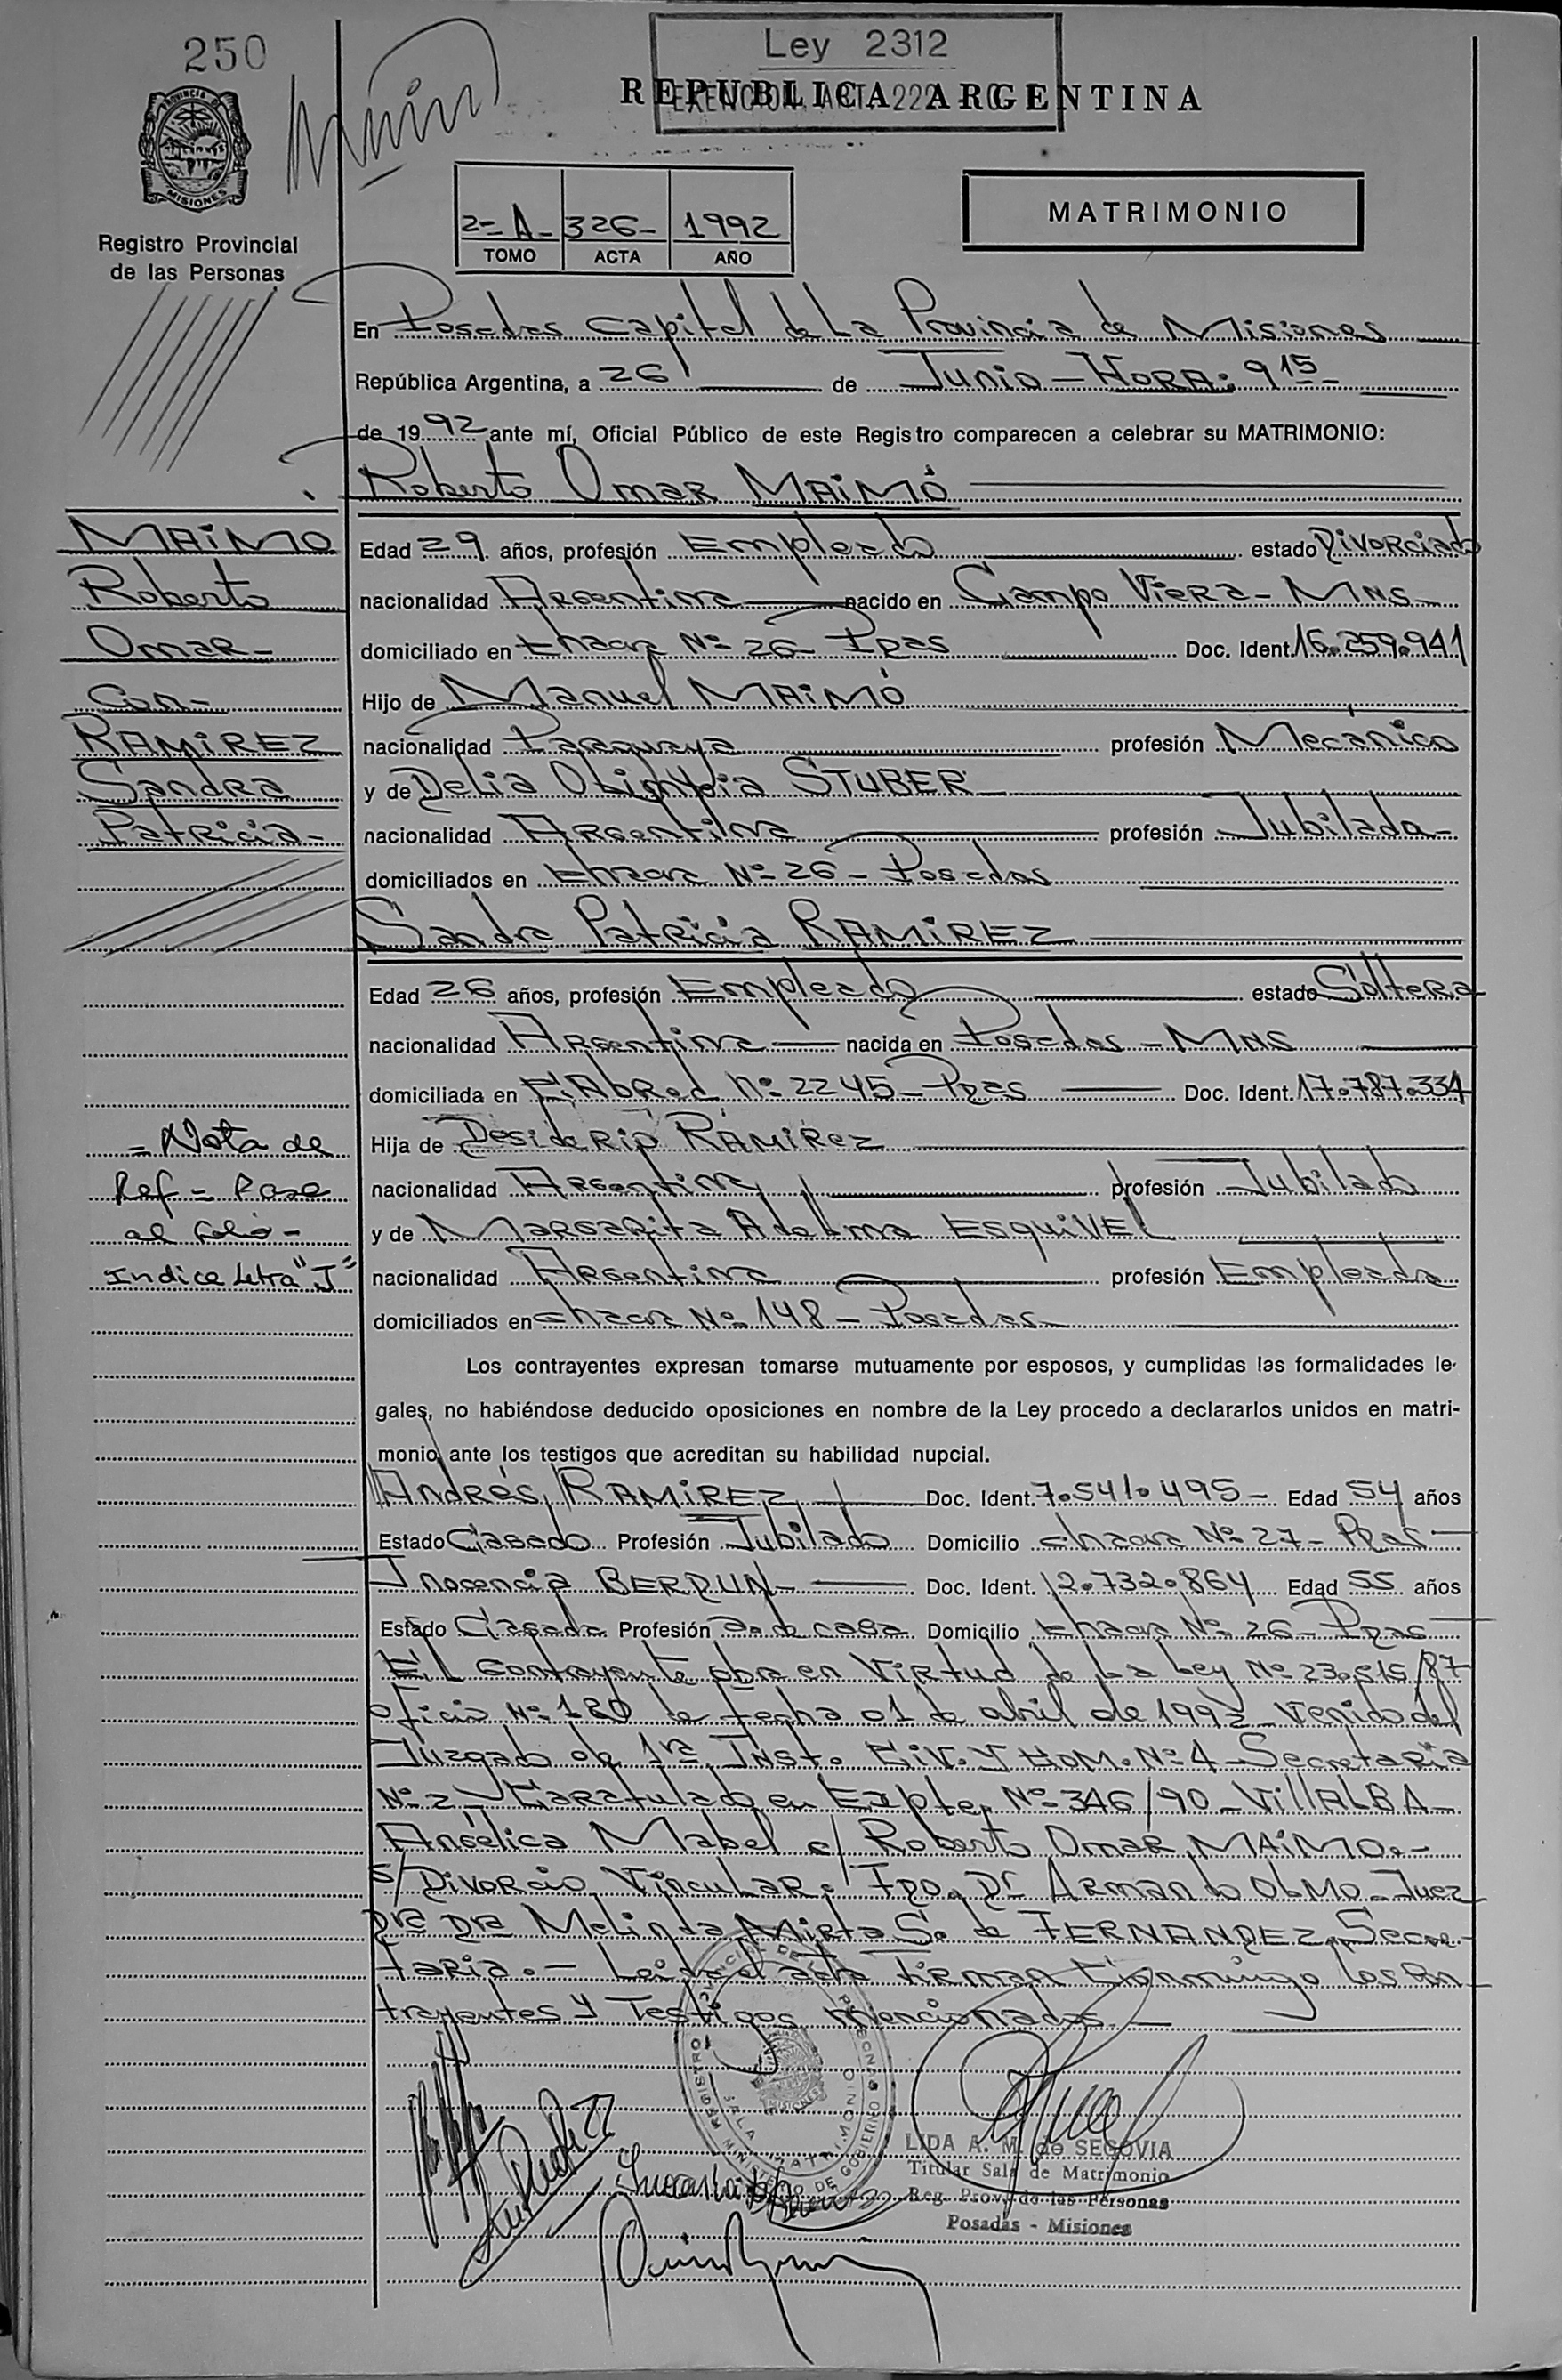 250
Ley 2312
REPUBLICA ARGENTINA
EXENCION ACT. 222
PROVINCIA DE MISIONES
Registro Provincial
de las Personas
2=A- 326- 1992
TOMO ACTA AÑO
MATRIMONIO
En Posadas Capital de La Provincia de Misiones
República Argentina, a 26 de Junio - HORA: 9 15-
de 1992 ante mí, Oficial Público de este Registro comparecen a celebrar su MATRIMONIO:
Roberto Omar MAIMÓ
MAIMO
Roberto
Omar-
Con-
RAMIREZ
Sandra
Patricia-
Edad 29 años, profesión Empleado estado Divorciado
nacionalidad Argentina nacido en Campo Viera - MNS-
domiciliado en Chacra Nº 26- Pdas Doc. Ident. 16.259.941
Hijo de Manuel MAIMÓ
nacionalidad Paraguaya profesión Mecánico
y de Delia Olimpia STUBER
nacionalidad Argentina profesión Jubilada-
domiciliados en Chacra Nº 26- Posadas
Sandra Patricia RAMIREZ
Edad 26 años, profesión Empleada estado Soltera
nacionalidad Argentina nacida en Posadas - MNS
domiciliada en Nº 2245- Pdas Doc. Ident. 17.787.334
Hija de Desiderio RAMIREZ
nacionalidad Argentina profesión Jubilado
y de Margarita Adelma ESQUIVEL
nacionalidad Argentina profesión Empleada
domiciliados en chacra Nº 148- Posadas
= Nota de
Ref = Pase
al folio -
Indice Letra "J"
Los contrayentes expresan tomarse mutuamente por esposos, y cumplidas las formalidades le-
gales, no habiéndose deducido oposiciones en nombre de la Ley procedo a declararlos unidos en matri-
monio, ante los testigos que acreditan su habilidad nupcial.
Andrés RAMIREZ Doc. Ident. 7.541.495- Edad 54 años
Estado Casado Profesión Jubilado Domicilio chacra Nº 27- Pdas
Inocencia BERDUN Doc. Ident. 12.732.864 Edad 55 años
Estado Casada Profesión a. de casa Domicilio chacra Nº 26- Pdas
El contrayente obra en Virtud de La Ley Nº 23.515/87
oficio Nº 180 de fecha 01 de abril de 1992 Venido del
Juzgado de 1ra Inst. Civ. Y HOM. Nº 4 - Secretaria
Nº 2- Caratulado en Expte. Nº 346/90 - VillALBA
Angélica Mabel c/ Roberto Omar MAIMO.-
S/ Divorcio Vincular. Fdo. Dr Armando OLMO - Juez
Dra Melinda Mirta S. de FERNANDEZ Secre-
taria. - Leida el acta firman conmigo los con
trayentes y Testigos mencionados
REGISTRO PROVINCIAL DE LAS PERSONAS
SALA MATRIMONIO
MINISTERIO DE GOBIERNO
LIDA A. M. de SEGOVIA
Titular Sala de Matrimonio
Reg. Prov. de las Personas
Posadas - Misiones